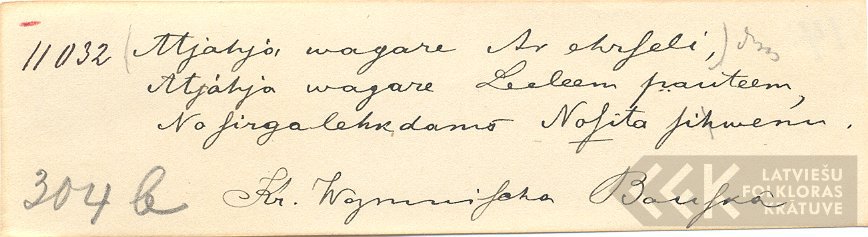 11032 (Atjahja wagare Ar ehrseli,)
Atjahja wagare Leeleem pauteem,
No sirga lehkdams Nosita sihwenu.
304 b Kr. Bauska
LATVIEŠU
FOLKLORAS
KRĀTUVE